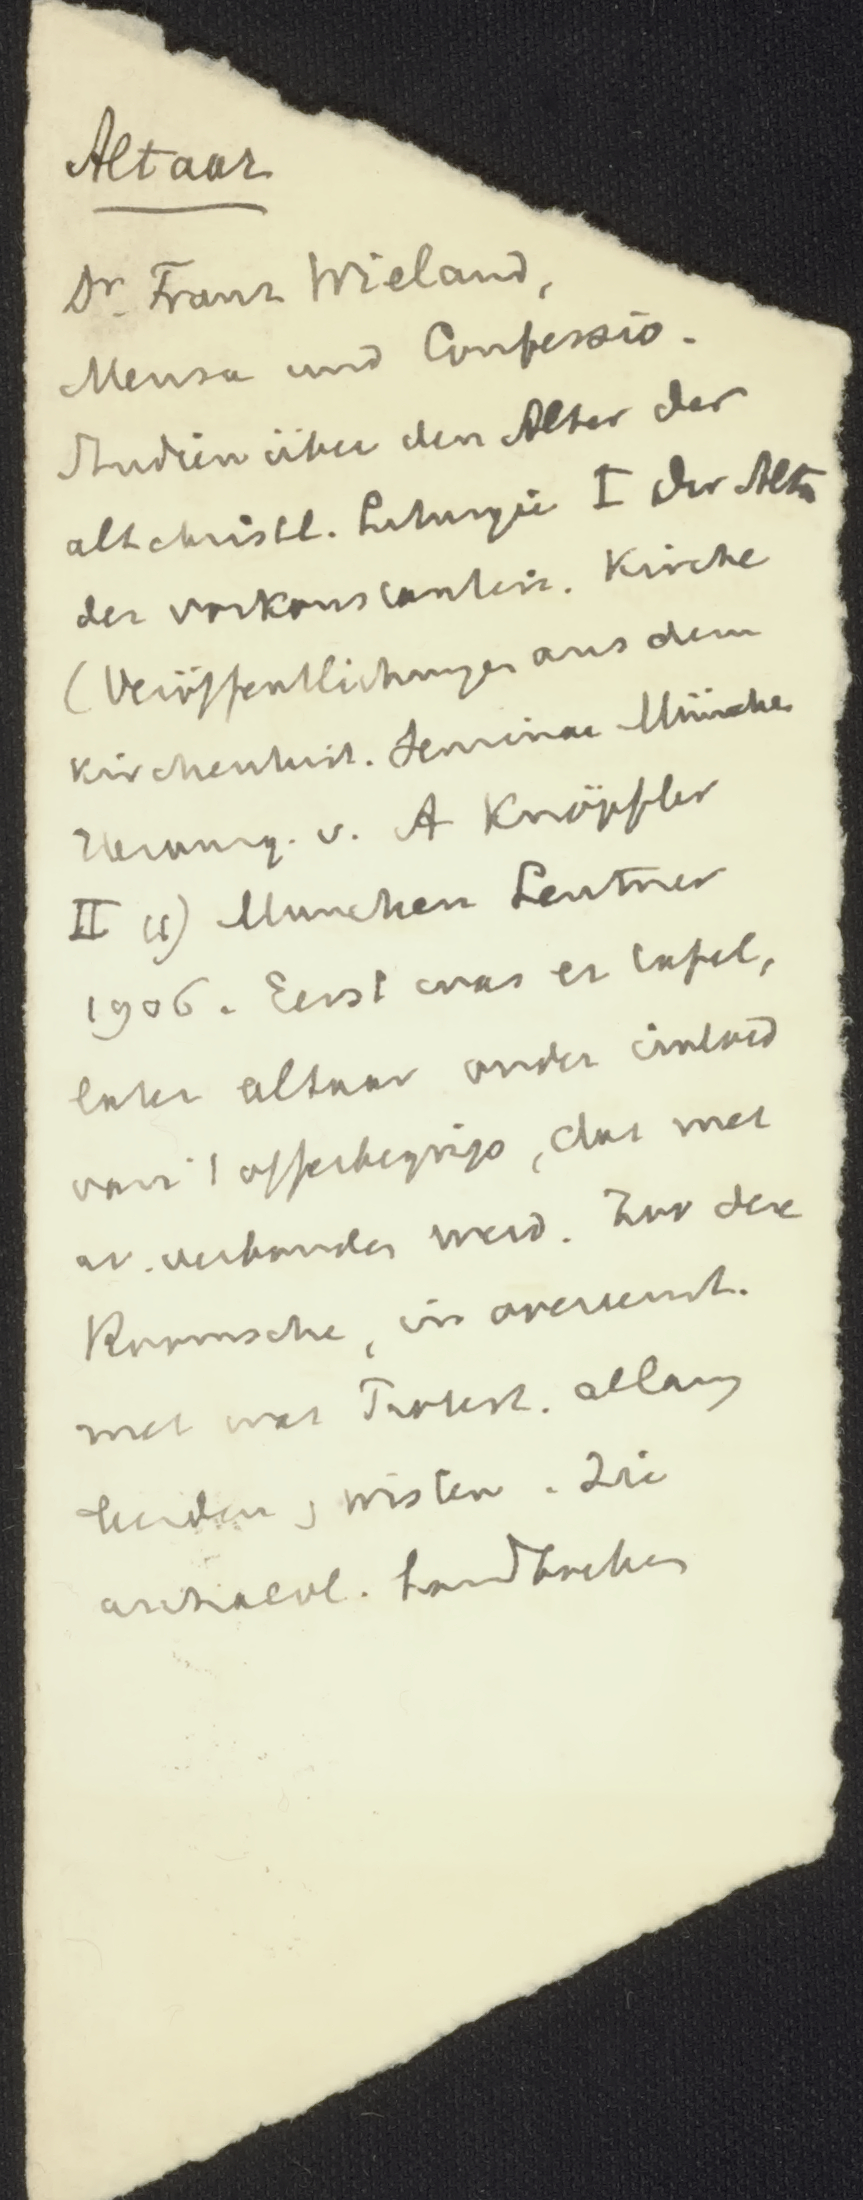 Altaar
Dr. Franz Wieland,
Mensa und Confessio.
Studien über den Altar der
altchristl. Liturgie I Der Alta
der vorkonstantin. Kirche
(Veröffentlichungen aus dem
Kirchenhist. Seminar München
Herausg. v. A Knöpfler
II 11) München Lentner
1906. Eerst was er tafel,
later altaar onder invloed
van 't offerbegrip, dat met
av. verbonden werd. Zoo deze
Roomsche, in overeenst.
met wat Protest. allang
leerden, wisten. Zie
archaeol. handboeken